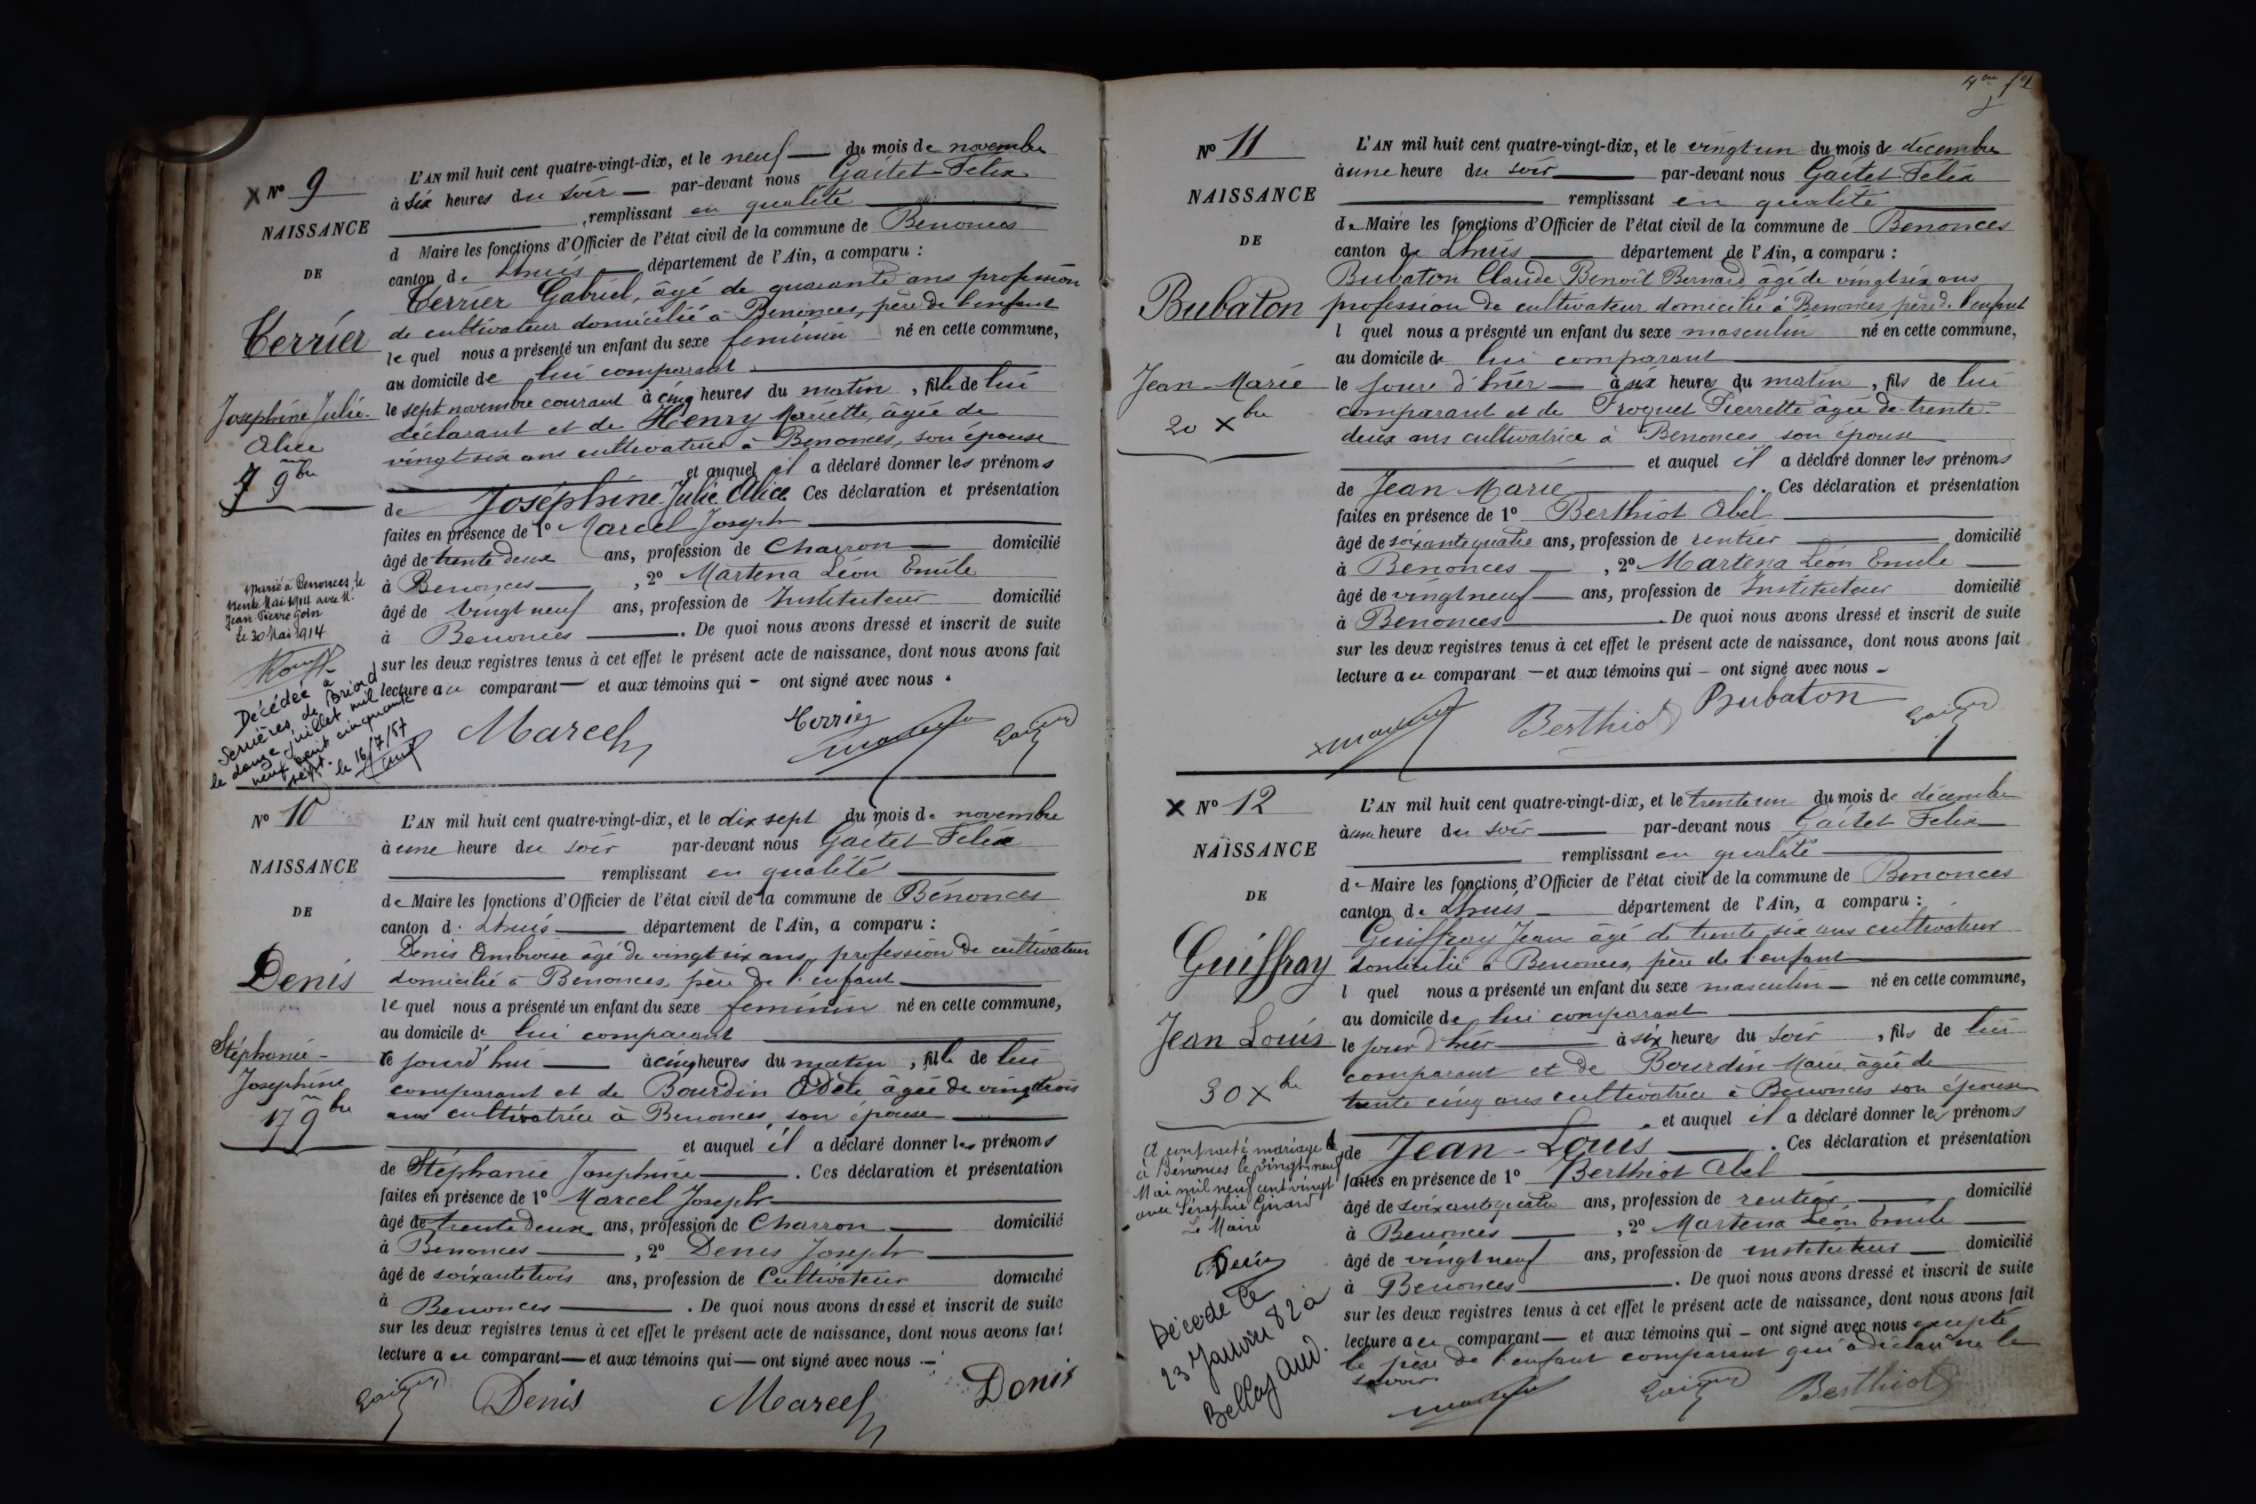 X N° 9
NAISSANCE
DE
Terrier
Joséphine Julie
Alice
7 9bre
Mariée à Benonces, le
trente Mai 1914 avec M.
Jean Pierre
Le 30 Mai 1914
Décédée à
Serrières de Briord
le douze juillet mil
neuf cent cinquante
sept. le 16/7/57
L'AN mil huit cent quatre-vingt-dix, et le neuf du mois de novembre
à six heures du soir par-devant nous Gaitet Félix
, remplissant en qualité
d Maire les fonctions d'Officier de l'état civil de la commune de Benonces
canton de Lhuis département de l'Ain, a comparu :
Terrier Gabriel, âgé de quarante ans profession
de cultivateur domicilié à Benonces, père de l'enfant
le quel nous a présenté un enfant du sexe féminin né en cette commune,
au domicile de lui comparant
le sept novembre courant à cinq heures du matin, fille de lui
déclarant et de Henry Mariette, âgée de
vingt six ans cultivatrice à Benonces, son épouse
et auquel il a déclaré donner les prénoms
de Joséphine Julie Alice Ces déclaration et présentation
faites en présence de 1° Marcel Joseph
âgé de trente deux ans, profession de Charron domicilié
à Benonces, 2° Martena Léon Emile
âgé de vingt neuf ans, profession de Instituteur domicilié
à Benonces. De quoi nous avons dressé et inscrit de suite
sur les deux registres tenus à cet effet le présent acte de naissance, dont nous avons fait
lecture au comparant et aux témoins qui ont signé avec nous.
Marcel Terrier
N° 10
NAISSANCE
DE
Denis
Stéphanie
Joséphine
17 9bre
L'AN mil huit cent quatre-vingt-dix, et le dix sept du mois de novembre
à une heure du soir par-devant nous Gaitet Félix
remplissant en qualité
de Maire les fonctions d'Officier de l'état civil de la commune de Bénonces
canton d. Lhuis département de l'Ain, a comparu :
Denis Ambroise âgé de vingt six ans, profession de cultivateur
domicilié à Benonces, père de l'enfant
le quel nous a présenté un enfant du sexe féminin né en cette commune,
au domicile de lui comparant
ce jourd'hui à cinq heures du matin, fille de lui
comparant et de Bourdin Adèle âgée de vingt trois
ans cultivatrice à Benonces, son épouse
et auquel il a déclaré donner les prénoms
de Stéphanie Joséphine. Ces déclaration et présentation
faites en présence de 1° Marcel Joseph
âgé de trente deux ans, profession de Charron domicilié
à Benonces, 2° Denis Joseph
âgé de soixante trois ans, profession de Cultivateur domicilié
à Benonces. De quoi nous avons dressé et inscrit de suite
sur les deux registres tenus à cet effet le présent acte de naissance, dont nous avons fait
lecture au comparant et aux témoins qui ont signé avec nous.
Denis Marcel Denis
N° 11
NAISSANCE
DE
Bubaton
Jean-Marie
20 Xbre
L'AN mil huit cent quatre-vingt-dix, et le vingt un du mois de décembre
à une heure du soir par-devant nous Gaitet Félix
remplissant en qualité
de Maire les fonctions d'Officier de l'état civil de la commune de Benonces
canton de Lhuis département de l'Ain, a comparu :
Bubaton Claude Benoît Bernard âgé de vingt six ans
profession de cultivateur domicilié à Benonces père de l'enfant
l quel nous a présenté un enfant du sexe masculin né en cette commune,
au domicile de lui comparant
le jour d'hier à six heures du matin, fils de lui
comparant et de Troquet Pierrette âgée de trente
deux ans cultivatrice à Benonces son épouse
et auquel il a déclaré donner les prénoms
de Jean Marie. Ces déclaration et présentation
faites en présence de 1° Berthiot Abel
âgé de soixante quatre ans, profession de rentier domicilié
à Benonces, 2° Martena Léon Emile
âgé de vingt neuf ans, profession de Instituteur domicilié
à Benonces. De quoi nous avons dressé et inscrit de suite
sur les deux registres tenus à cet effet le présent acte de naissance, dont nous avons fait
lecture au comparant et aux témoins qui ont signé avec nous
Berthiot Bubaton
X N° 12
NAISSANCE
DE
Guiffray
Jean Louis
30 Xbre
A contracté mariage
à Bénonces le vingt neuf
Mai mil neuf cent vingt
avec Séraphie Girard
Le Maire
Décédé le
23 Janvier 82 à
Belley Ain.
L'AN mil huit cent quatre-vingt-dix, et le trente un du mois de décembre
à une heure du soir par-devant nous Gaitet Félix
remplissant en qualité
de Maire les fonctions d'Officier de l'état civil de la commune de Benonces
canton de Lhuis département de l'Ain, a comparu :
Guiffray Jean âgé de trente six ans cultivateur
domicilié à Benonces, père de l'enfant
l quel nous a présenté un enfant du sexe masculin né en cette commune,
au domicile de lui comparant
le jour d'hier à six heures du soir, fils de lui
comparant et de Bourdin Marie âgée de
trente cinq ans cultivatrice à Benonces son épouse
et auquel il a déclaré donner les prénoms
de Jean-Louis. Ces déclaration et présentation
faites en présence de 1° Berthiot Abel
âgé de soixante quatre ans, profession de rentier domicilié
à Benonces, 2° Martena Léon Emile
âgé de vingt neuf ans, profession de instituteur domicilié
à Benonces. De quoi nous avons dressé et inscrit de suite
sur les deux registres tenus à cet effet le présent acte de naissance, dont nous avons fait
lecture au comparant et aux témoins qui ont signé avec nous excepté
le père de l'enfant comparant qui a déclaré ne le
savoir.
Berthiot